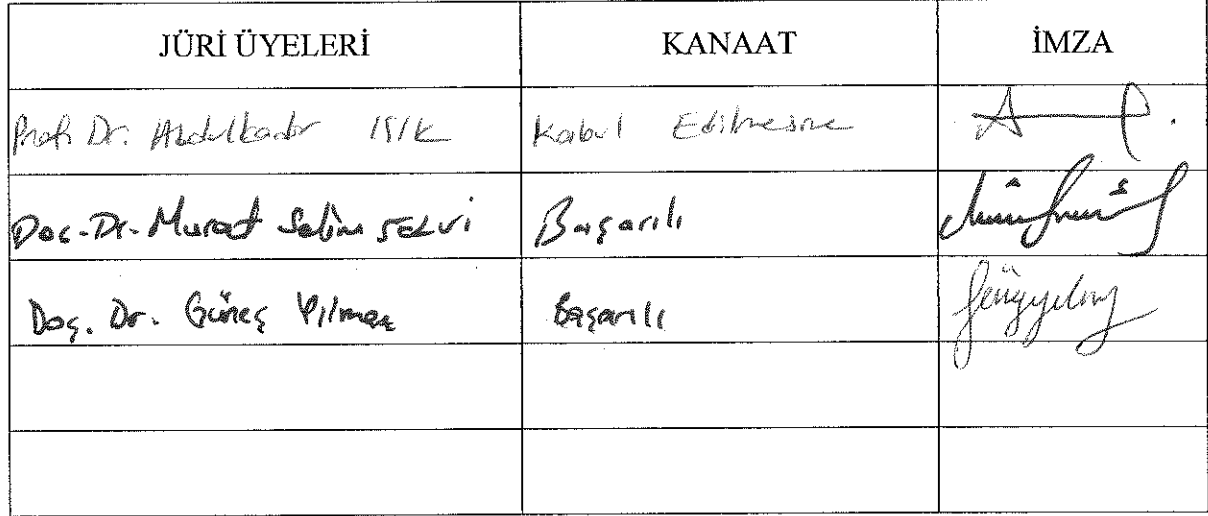 JÜRİ ÜYELERİ KANAAT İMZA
Prof. Dr. Abdulkadir IŞIK Kabul Edilmesine
Doç. Dr. Murat Selim SELVİ Başarılı
Doç. Dr. Güneş Yılmaz Başarılı